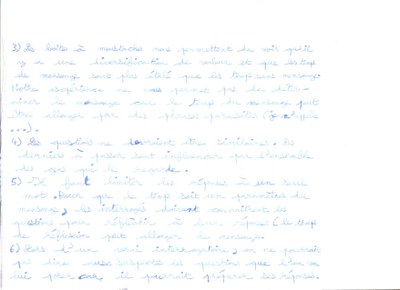 3) Les boîtes à moustaches nous permettent de voir qu'il
y a une diversification de valeur et que les temps
de mensonge sont plus étalé que les temps sans mensonge
Notre expérience ne nous permet pas de déter-
miner le mensonge car le temps du mensonge peut
être allonger par des phrases parasites (je m'appelle
...).
4) Les questions ne devraient être similaires. Le
dernier à passer sont influencer par l'ensemble
des gens qui le regarde.
5) - Il faut limiter des réponses à un seul
mot. Pour que le temps soit un paramètre du
mensonge, les interrogé doivent connaître les
questions pour réfléchir à leur réponse (le temps
de réflexion peut allonger le mensonge.
6) Lors d'un vrai interrogatoire, on ne pourrait
pas dire aux suspects les questions que l'on va
lui poser car il pourrait préparer ses réponses.